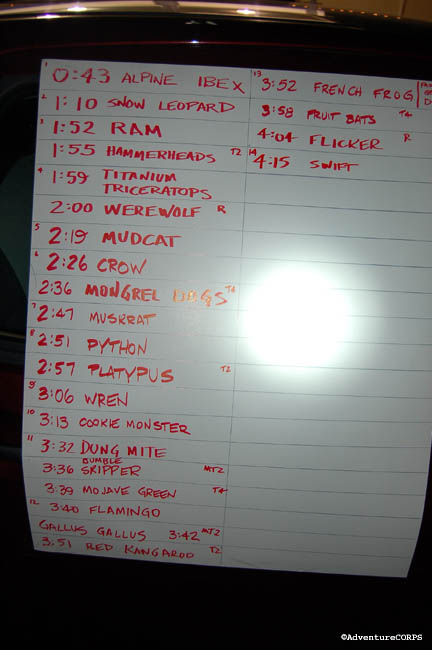 1 0:43 ALPINE IBEX
2 1:10 SNOW LEOPARD
3 1:52 RAM
1:55 HAMMERHEADS T2
4 1:59 TITANIUM
TRICERATOPS
2:00 WEREWOLF R
5 2:19 MUDCAT
6 2:26 CROW
2:36 MONGREL DAGS T4
7 2:47 MUSKRAT
8 2:51 PYTHON
2:57 PLATYPUS T2
9 3:06 WREN
10 3:13 COOKIE MONSTER
11 3:32 DUNG MITE
BUMBLE
3:36 SKIPPER MT2
3:39 MOJAVE GREEN T4
12 3:40 FLAMINGO
GALLUS GALLUS 3:42 MT2
3:51 RED KANGAROO T2
13 3:52 FRENCH FROG
3:58 FRUIT BATS T4
4:04 FLICKER R
14 4:15 SWIFT
©AdventureCORPS